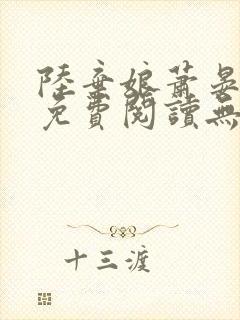 陸棄娘蕭晏
免費閱讀無
十三渡